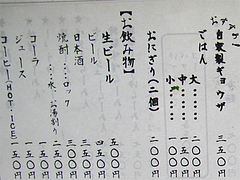 自家製ギョウザ 三五〇円
ごはん
大……二〇〇円
中……一五〇円
小……一〇〇円
おにぎり(二個) 二〇〇円
【お飲み物】
生ビール 五〇〇円
ビール 四五〇円
日本酒 三五〇円
焼酎……ロック 三〇〇円
……水、お湯割り
コーラ 一五〇円
ジュース 一五〇円
コーヒーHOT・ICE 一五〇円